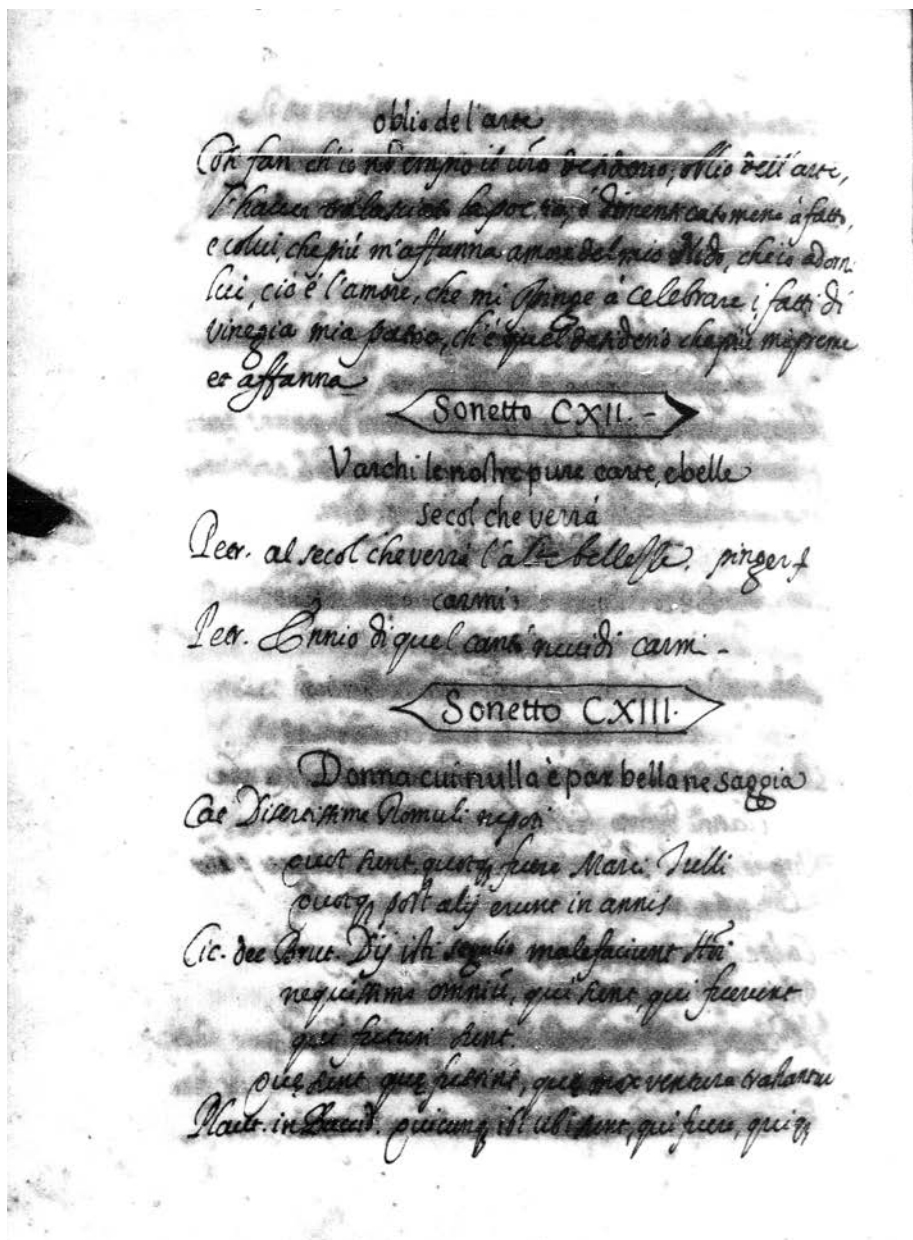 oblio de l'arte
Con fan ch'io nō empio il vr̄o desiderio, oblio dell'arte,
l'haver tralasciato la poesia, ó dimenticatomene à fatto,
e colui, che piú m'affanna amore del mio Nido, che io adorni
lui, ció é l'amore, che mi spinge à celebrare i fatti di
vinegia mia patria, ch'é quel desiderio che piu mi preme
et affanna
Sonetto CXII.-
Varchi le nostre pure carte, e belle
secol che verrá
Petr. al secol che verra l'alte bellesse. pinger
carmi
Petr. Ennio di quel cantó ruvidi carmi -
Sonetto CXIII.
Donna cui nulla è par bella ne saggia
Cat Disertissime Romuli nepoti
quot sunt, quotq3 fuere Marci Tulli
quotq3 post alij erunt in annis
Cic. Brut. Dij isti segulio malefaciant Hoī
nequissimo omniū, qui sunt, qui fuerunt
qui futuri sunt.
quę sunt quę fuerint, quę mox ventura trahantur
Plaut. in Bacid. quicunq3 ubi sunt, qui fuere, quiq3